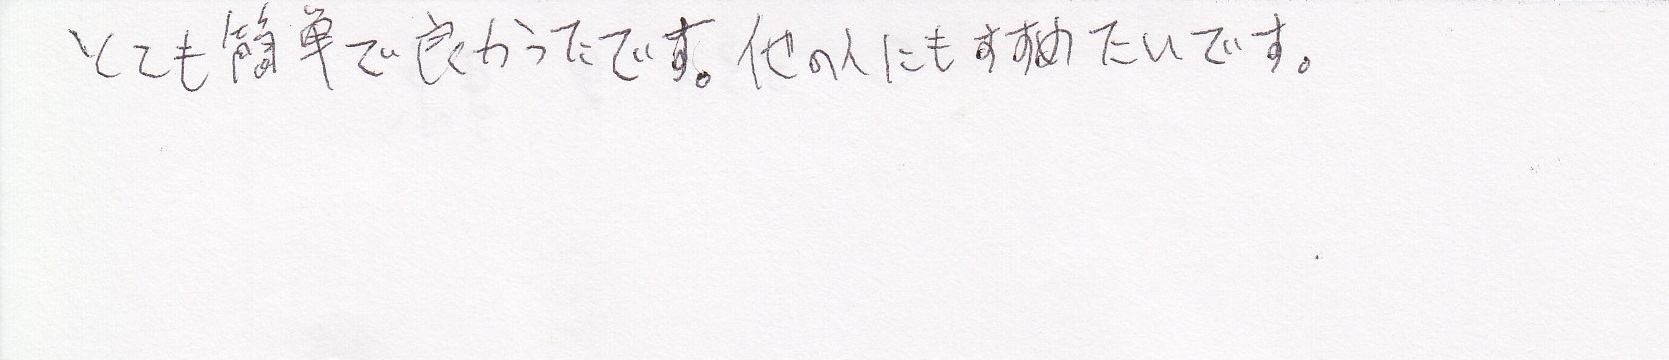 とても簡単で良かったです。他の人にもすすめたいです。